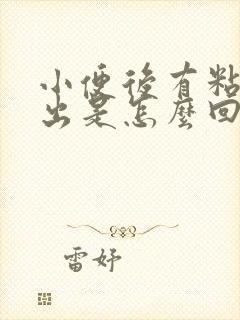 小便後有粘
出是怎麼回
雷妤